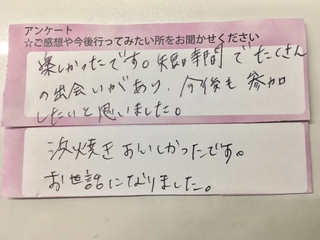 アンケート
☆ご感想や今後行ってみたい所をお聞かせください
楽しかったです。短時間でたくさん
の出会いがあり、今後も参加
したいと思いました。
浜焼きおいしかったです。
お世話になりました。